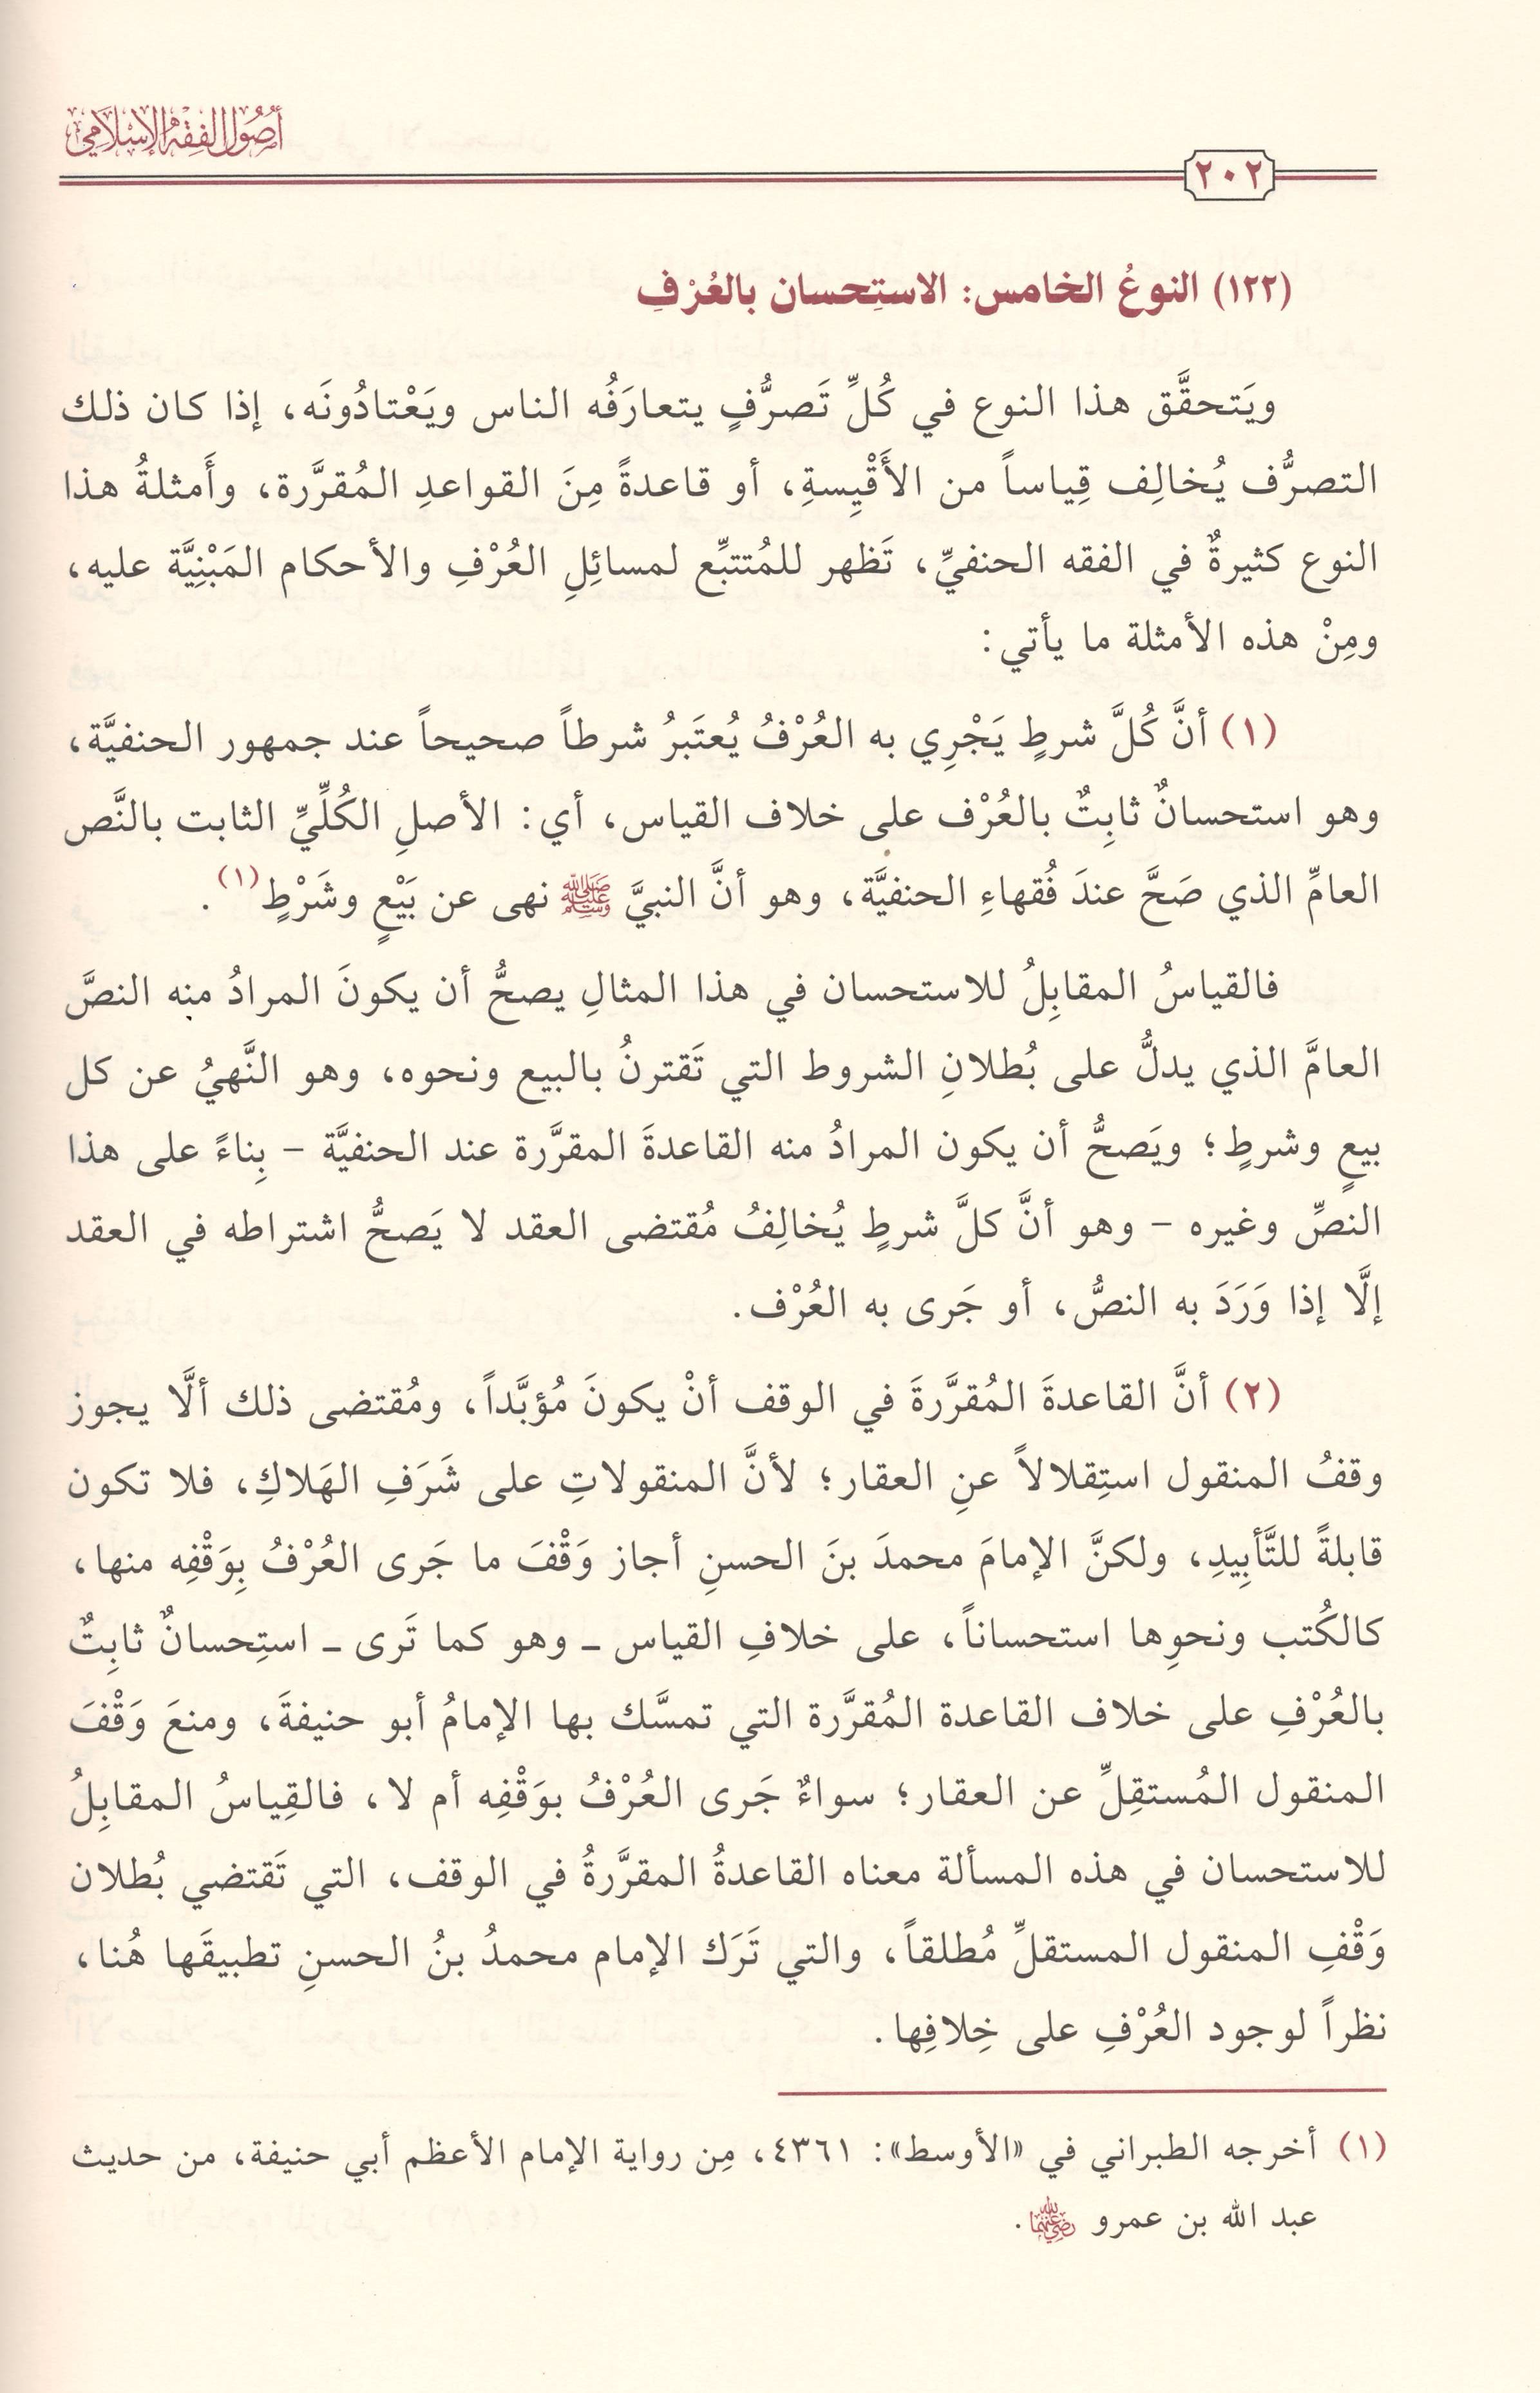 أُصُول الفِقْه الإِسْلَامِي
٢٠٢
(١٢٢) النوعُ الخامس: الاستِحسان بالعُرْفِ
ويَتحقَّق هذا النوع في كُلِّ تَصرُّفٍ يتعارَفُه الناس ويَعْتادُونَه، إذا كان ذلك
التصرُّف يُخالِف قِياساً من الأَقْيِسةِ، أو قاعدةً مِنَ القواعدِ المُقرَّرة، وأَمثلةُ هذا
النوع كثيرةٌ في الفقه الحنفيِّ، تَظهر للمُتتبِّع لمسائِلِ العُرْفِ والأحكام المَبْنِيَّة عليه،
ومِنْ هذه الأمثلة ما يأتي:
(١) أنَّ كُلَّ شرطٍ يَجْرِي به العُرْفُ يُعتَبرُ شرطاً صحيحاً عند جمهور الحنفيَّة،
وهو استحسانٌ ثابِتٌ بالعُرْف على خلاف القياس، أي: الأصلِ الكُلِّيِّ الثابت بالنَّص
العامِّ الذي صَحَّ عندَ فُقهاءِ الحنفيَّة، وهو أنَّ النبيَّ ﷺ نهى عن بَيْعٍ وشَرْطٍ(١).
فالقياسُ المقابِلُ للاستحسان في هذا المثالِ يصحُّ أن يكونَ المرادُ منه النصَّ
العامَّ الذي يدلُّ على بُطلانِ الشروط التي تَقترنُ بالبيع ونحوه، وهو النَّهيُ عن كل
بيعٍ وشرطٍ؛ ويَصحُّ أن يكون المرادُ منه القاعدةَ المقرَّرة عند الحنفيَّة – بِناءً على هذا
النصِّ وغيره – وهو أنَّ كلَّ شرطٍ يُخالِفُ مُقتضى العقد لا يَصحُّ اشتراطه في العقد
إلَّا إذا وَرَدَ به النصُّ، أو جَرى به العُرْف.
(٢) أنَّ القاعدةَ المُقرَّرةَ في الوقف أنْ يكونَ مُؤبَّداً، ومُقتضى ذلك ألَّا يجوز
وقفُ المنقول استِقلالاً عنِ العقار؛ لأنَّ المنقولاتِ على شَرَفِ الهَلاكِ، فلا تكون
قابلةً للتَّأبِيدِ، ولكنَّ الإمامَ محمدَ بنَ الحسنِ أجاز وَقْفَ ما جَرى العُرْفُ بِوَقْفِه منها،
كالكُتب ونحوِها استحساناً، على خلافِ القياس ـ وهو كما تَرى ـ استِحسانٌ ثابِتٌ
بالعُرْفِ على خلاف القاعدة المُقرَّرة التي تمسَّك بها الإمامُ أبو حنيفةَ، ومنعَ وَقْفَ
المنقول المُستقِلِّ عن العقار؛ سواءٌ جَرى العُرْفُ بوَقْفِه أم لا، فالقِياسُ المقابِلُ
للاستحسان في هذه المسألة معناه القاعدةُ المقرَّرةُ في الوقف، التي تَقتضي بُطلان
وَقْفِ المنقول المستقلِّ مُطلقاً، والتي تَرَك الإمام محمدُ بنُ الحسنِ تطبيقَها هُنا،
نظراً لوجود العُرْفِ على خِلافِها.
(١) أخرجه الطبراني في «الأوسط»: ٤٣٦١، مِن رواية الإمام الأعظم أبي حنيفة، من حديث
عبد الله بن عمرو رضي الله عنهما.